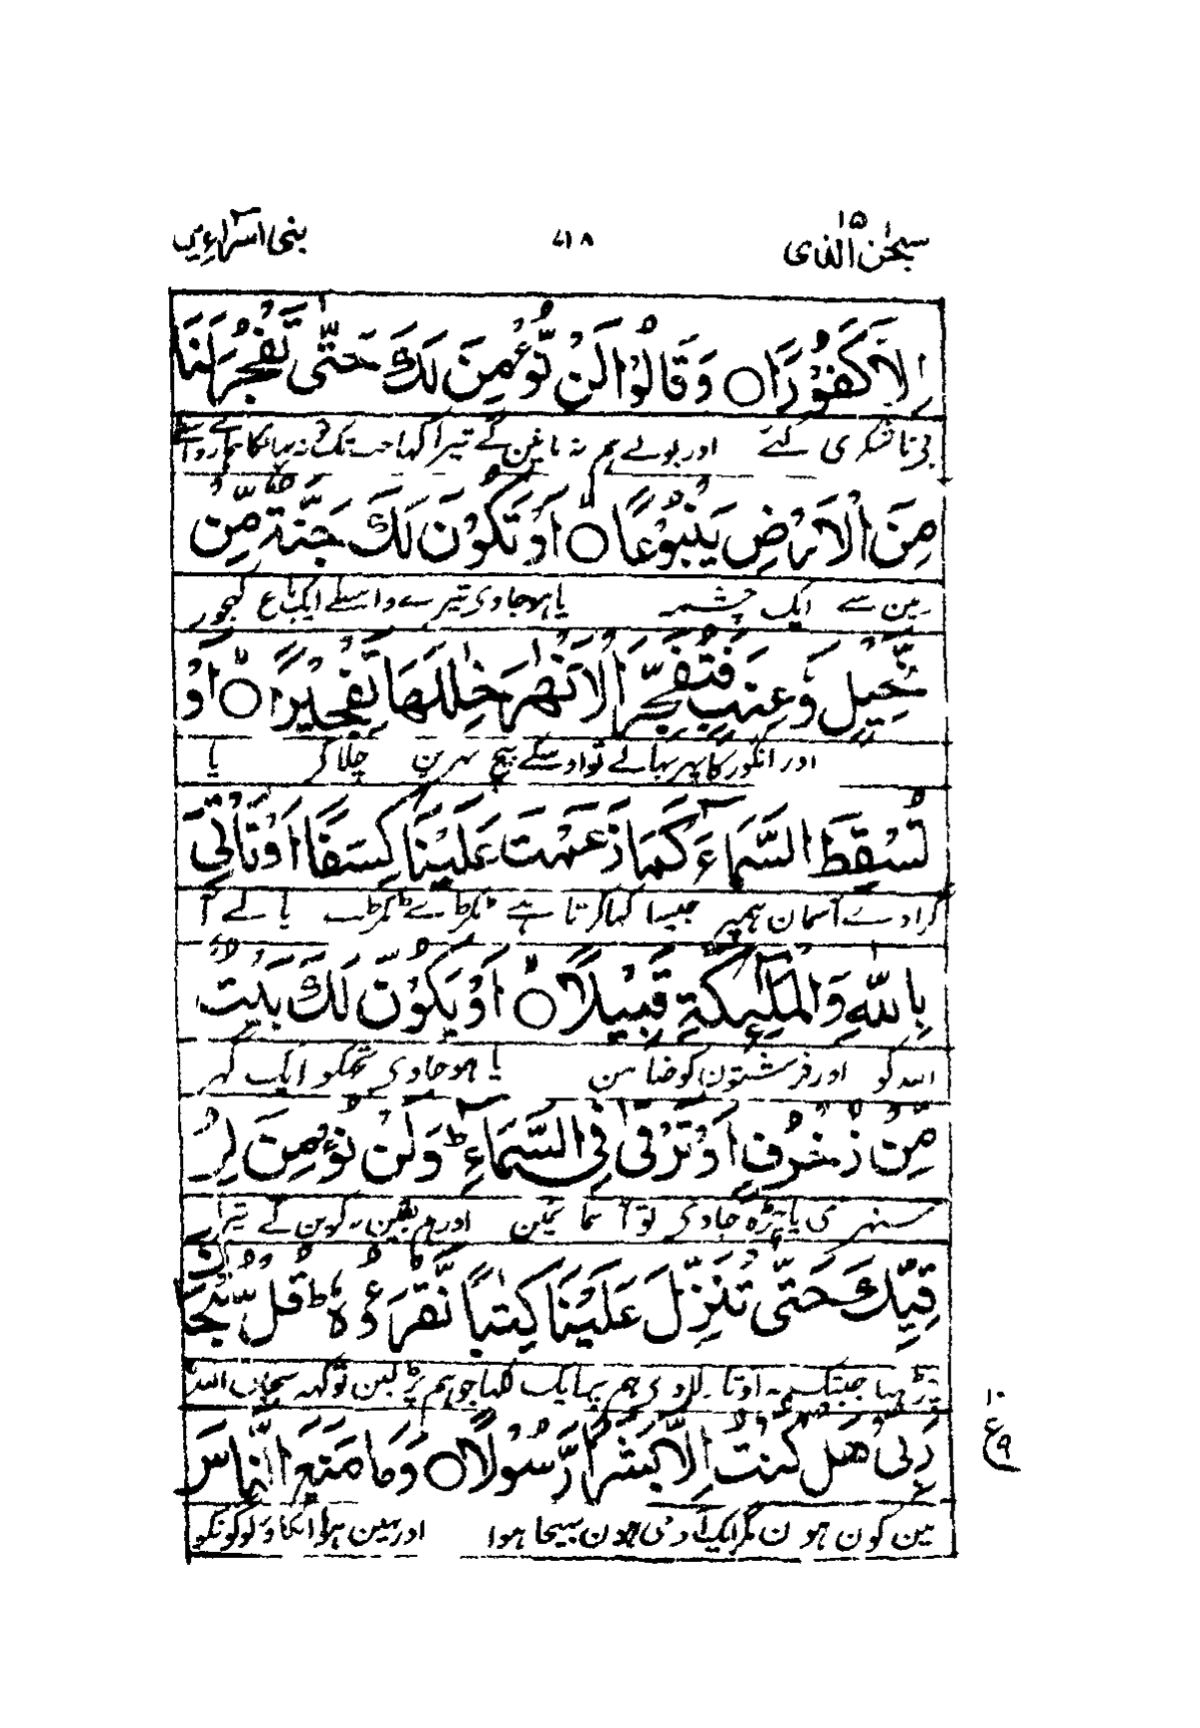 سبحٰن الذی ۱۵
۴۱۸
بنی اسراءیل
اِلَّا كُفُوْرًا○ وَقَالُوْا لَنْ نُّؤْمِنَ لَكَ حَتّٰى تَفْجُرَ لَنَا
بی ناشکری کئے اور بولے ہم نہ مانین گے تیرا کہا جب تک نہ بہا
مِنَ الْاَرْضِ يَنْۢبُوْعًا○ اَوْ تَكُوْنَ لَكَ جَنَّةٌ مِّنْ
زمین سے ایک چشمہ یا ہو جاوی تیرے واسطے ایک باغ کھجور
نَّخِيْلٍ وَّعِنَبٍ فَتُفَجِّرَ الْاَنْهٰرَ خِلٰلَهَا تَفْجِيْرًا○ اَوْ
اور انگور کا پھر بہالے تو اوسکے بیچ نہرین چلا کر یا
تُسْقِطَ السَّمَآءَ كَمَا زَعَمْتَ عَلَيْنَا كِسَفًا اَوْ تَاْتِيَ
گرا دے آسمان ہمپر جیسا کہا کرتا ہے ٹکڑے ٹکڑے یا لے آ
بِاللّٰهِ وَالْمَلٰٓئِكَةِ قَبِيْلًا○ اَوْ يَكُوْنَ لَكَ بَيْتٌ
اللہ کو اور فرشتون کو ضامن یا ہو جاوی تجھکو ایک گھر
مِّنْ زُخْرُفٍ اَوْ تَرْقٰى فِى السَّمَآءِ ؕ وَلَنْ نُّؤْمِنَ لِرُ
سنہری یا چڑہ جاوی تو آسمانمین اور ہم یقین نہ کرین گے تیرا
قِيِّكَ حَتّٰى تُنَزِّلَ عَلَيْنَا كِتٰبًا نَّقْرَؤُهٗ ؕ قُلْ سُبْحَانَ
چڑہنا جبتک نہ اوتار لاوی ہم پر ایک لکھا جو ہم پڑہ لین تو کہہ سبحان اللہ
رَبِّىْ هَلْ كُنْتُ اِلَّا بَشَرًا رَّسُوْلًا○ وَمَا مَنَعَ النَّاسَ
۱۰
ع
۹
مین کون ہون مگر ایک آدمی ہون بھیجا ہوا اور نہین ہوا اٹکاؤ لوگونکو